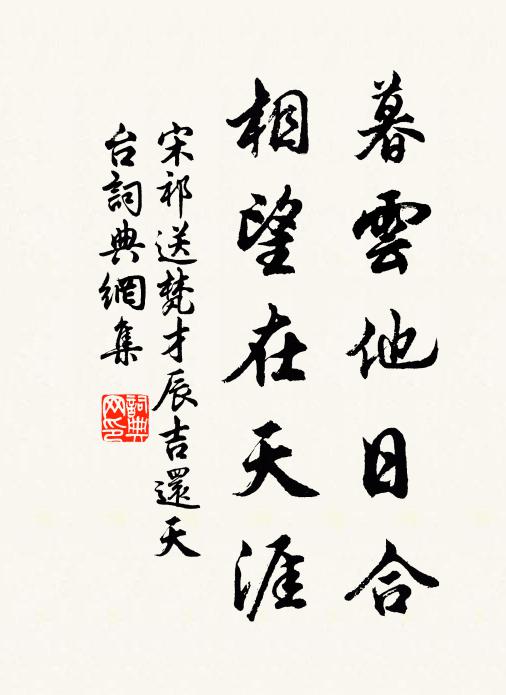 暮雲他日合
相望在天涯
宋祁送梵才辰吉還天
台詞典網集
詞典
网印